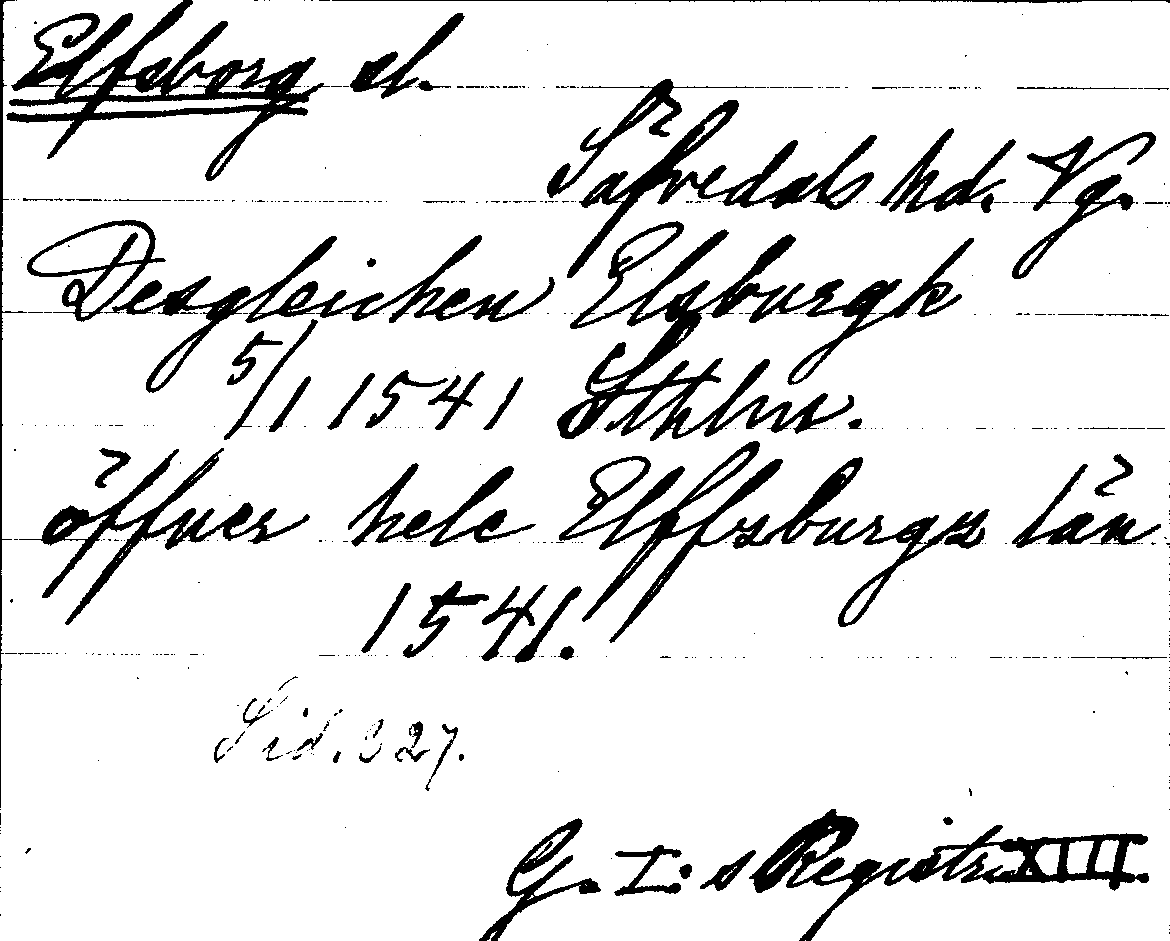 Elfsborg sl.
Säfvedals hd. Vg.
Desgleichen Elsburgk
5/1 1541 Sthlm.
öffuer hele Elffsburgs län
1541.
Sid. 327.
G. I:s Registr. XIII.